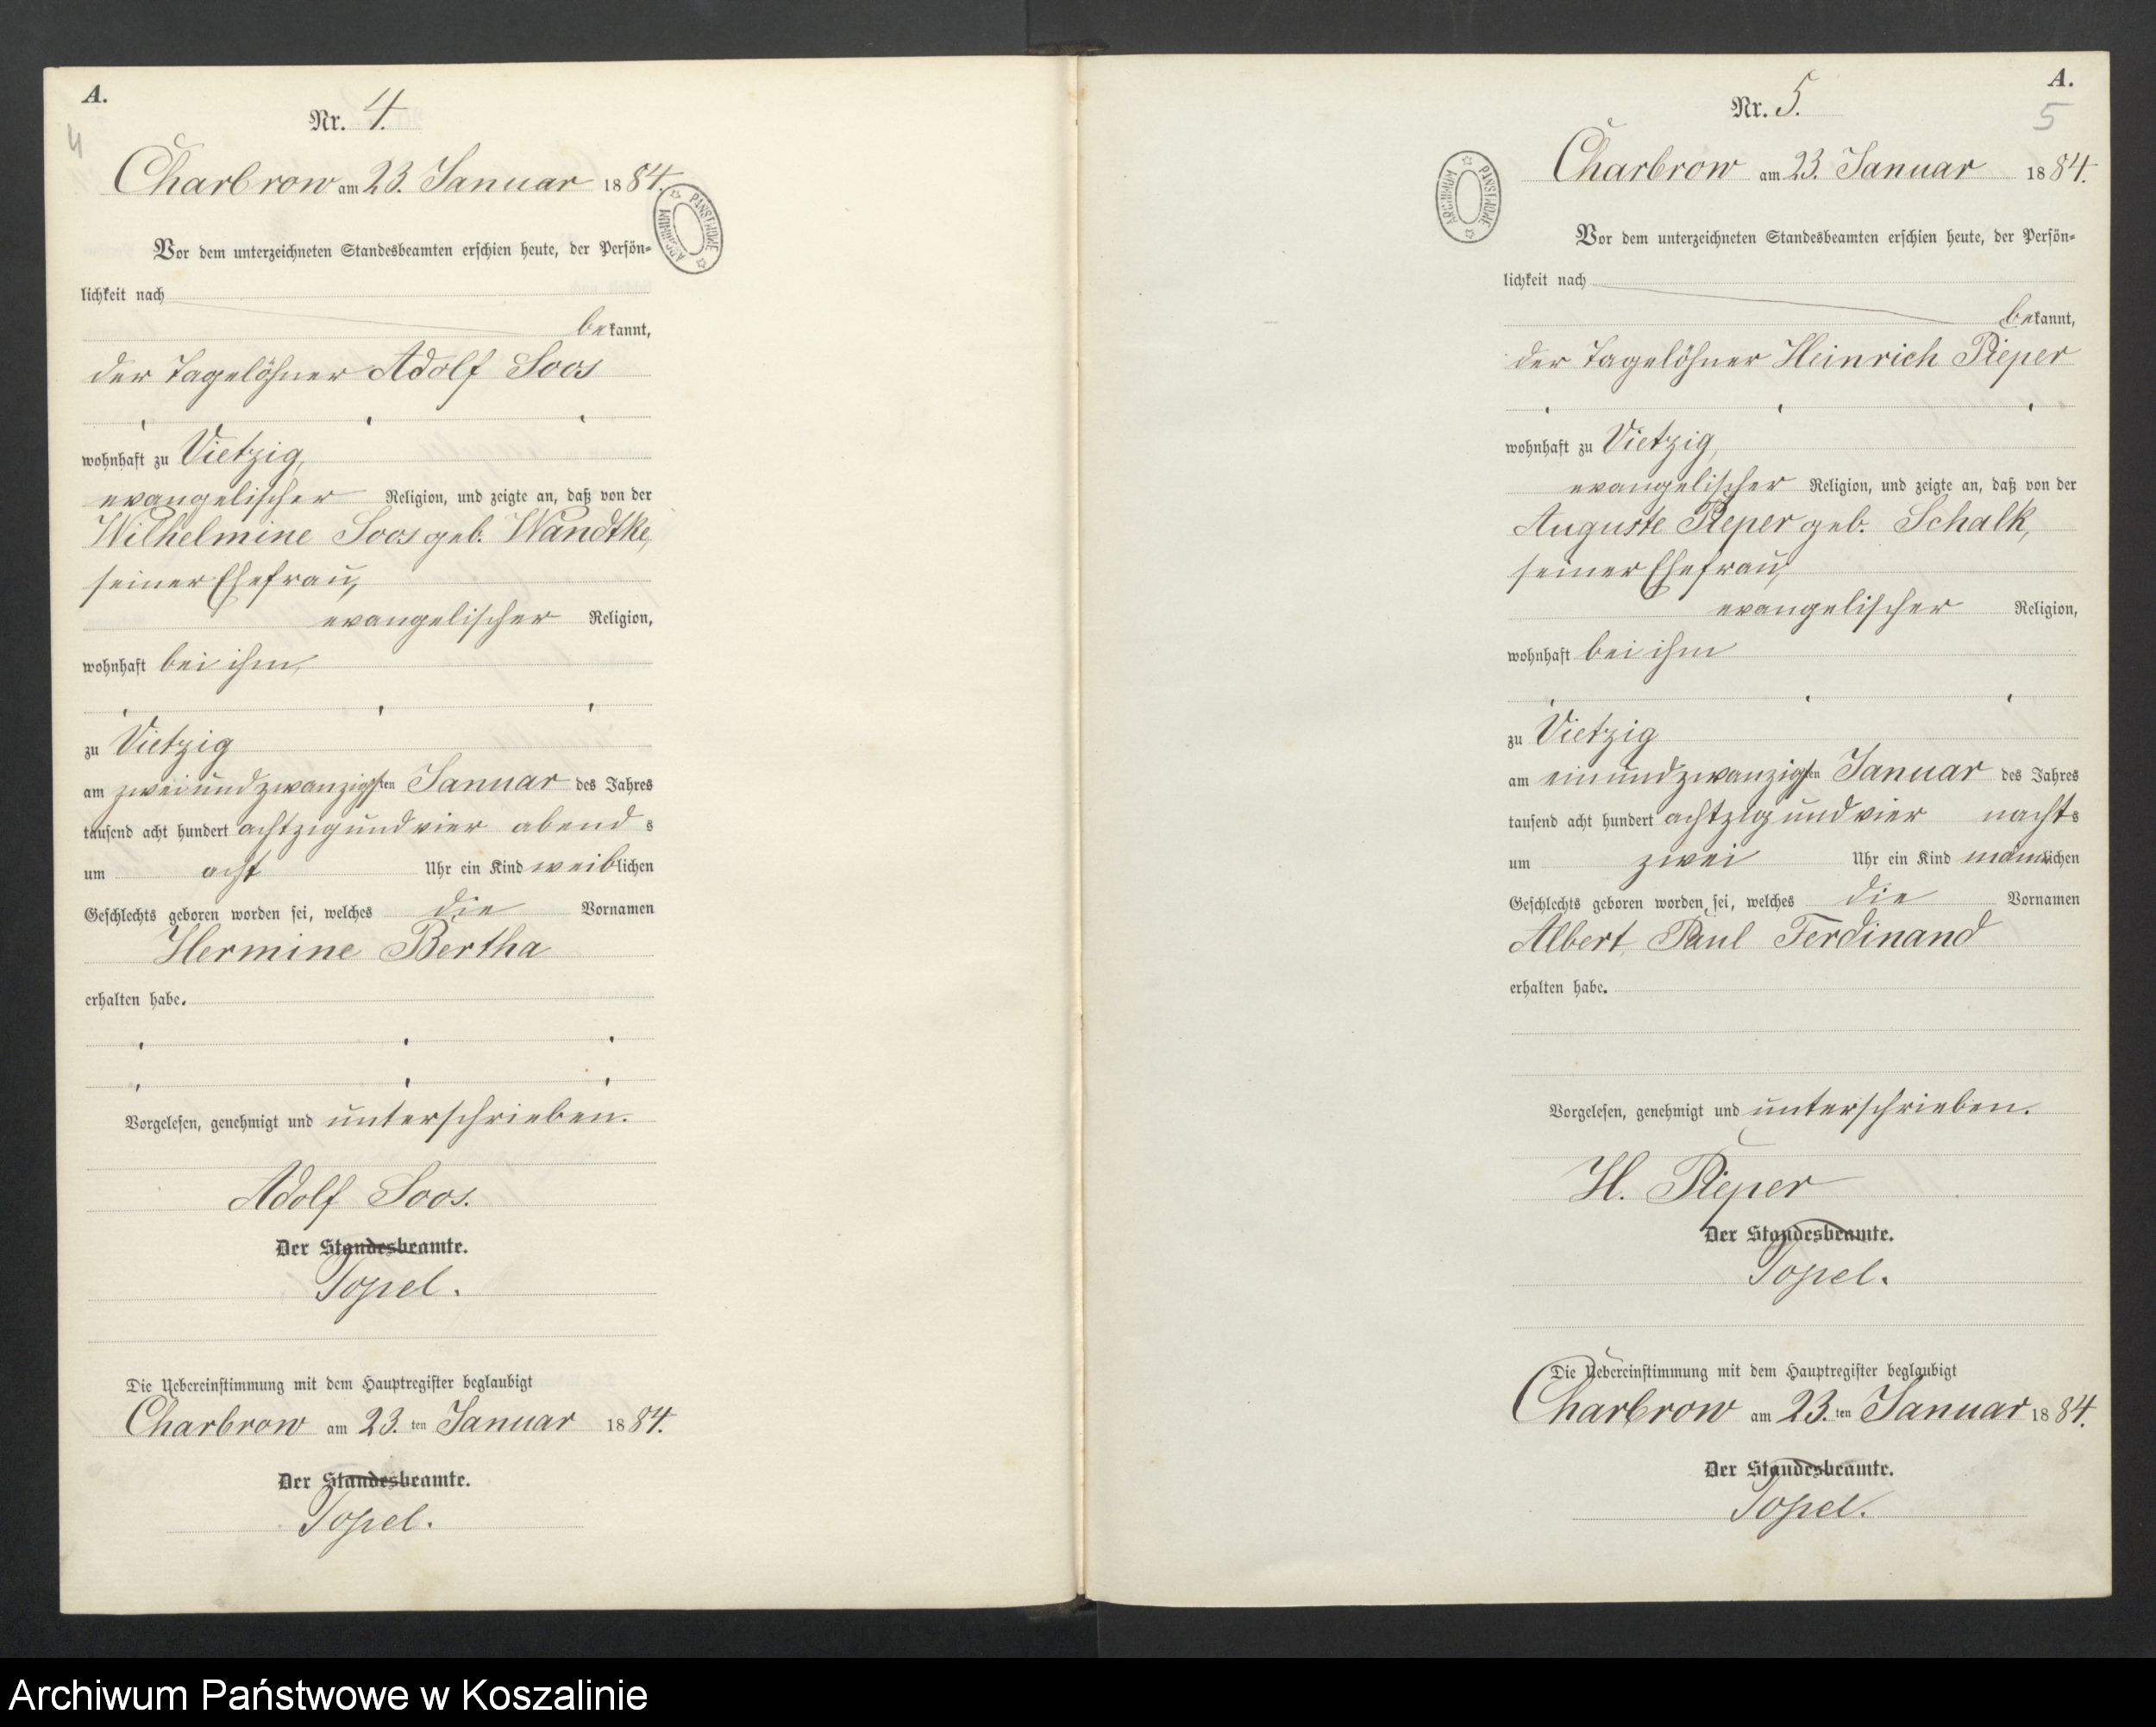 A.
4
Nr. 4.
Charbrow am 23. Januar 1884.
ARCHIWUM PAŃSTWOWE
Vor dem unterzeichneten Standesbeamten erschien heute, der Persön-
lichkeit nach
bekannt,
der Tagelöhner Adolf Soos
wohnhaft zu Vietzig,
evangelischer Religion, und zeigte an, daß von der
Wilhelmine Soos geb. Wandtke,
seiner Ehefrau,
evangelischer Religion,
wohnhaft bei ihm,
zu Vietzig
am zweiundzwanzigsten Januar des Jahres
tausend acht hundert achtzigundvier abends
um acht Uhr ein Kind weiblichen
Geschlechts geboren worden sei, welches die Vornamen
Hermine Bertha
erhalten habe.
Vorgelesen, genehmigt und unterschrieben.
Adolf Soos.
Der Standesbeamte.
Topel.
Die Uebereinstimmung mit dem Hauptregister beglaubigt
Charbrow am 23. ten Januar 1884.
Der Standesbeamte.
Topel.
A.
5
Nr. 5.
Charbrow am 23. Januar 1884.
ARCHIWUM PAŃSTWOWE
Vor dem unterzeichneten Standesbeamten erschien heute, der Persön-
lichkeit nach
bekannt,
der Tagelöhner Heinrich Pieper
wohnhaft zu Vietzig,
evangelischer Religion, und zeigte an, daß von der
Auguste Pieper geb. Schalk,
seiner Ehefrau,
evangelischer Religion,
wohnhaft bei ihm
zu Vietzig
am einundzwanzigsten Januar des Jahres
tausend acht hundert achtzigundvier nachts
um zwei Uhr ein Kind männlichen
Geschlechts geboren worden sei, welches die Vornamen
Albert Paul Ferdinand
erhalten habe.
Vorgelesen, genehmigt und unterschrieben.
H. Pieper
Der Standesbeamte.
Topel.
Die Uebereinstimmung mit dem Hauptregister beglaubigt
Charbrow am 23. ten Januar 1884.
Der Standesbeamte.
Topel.
Archiwum Państwowe w Koszalinie